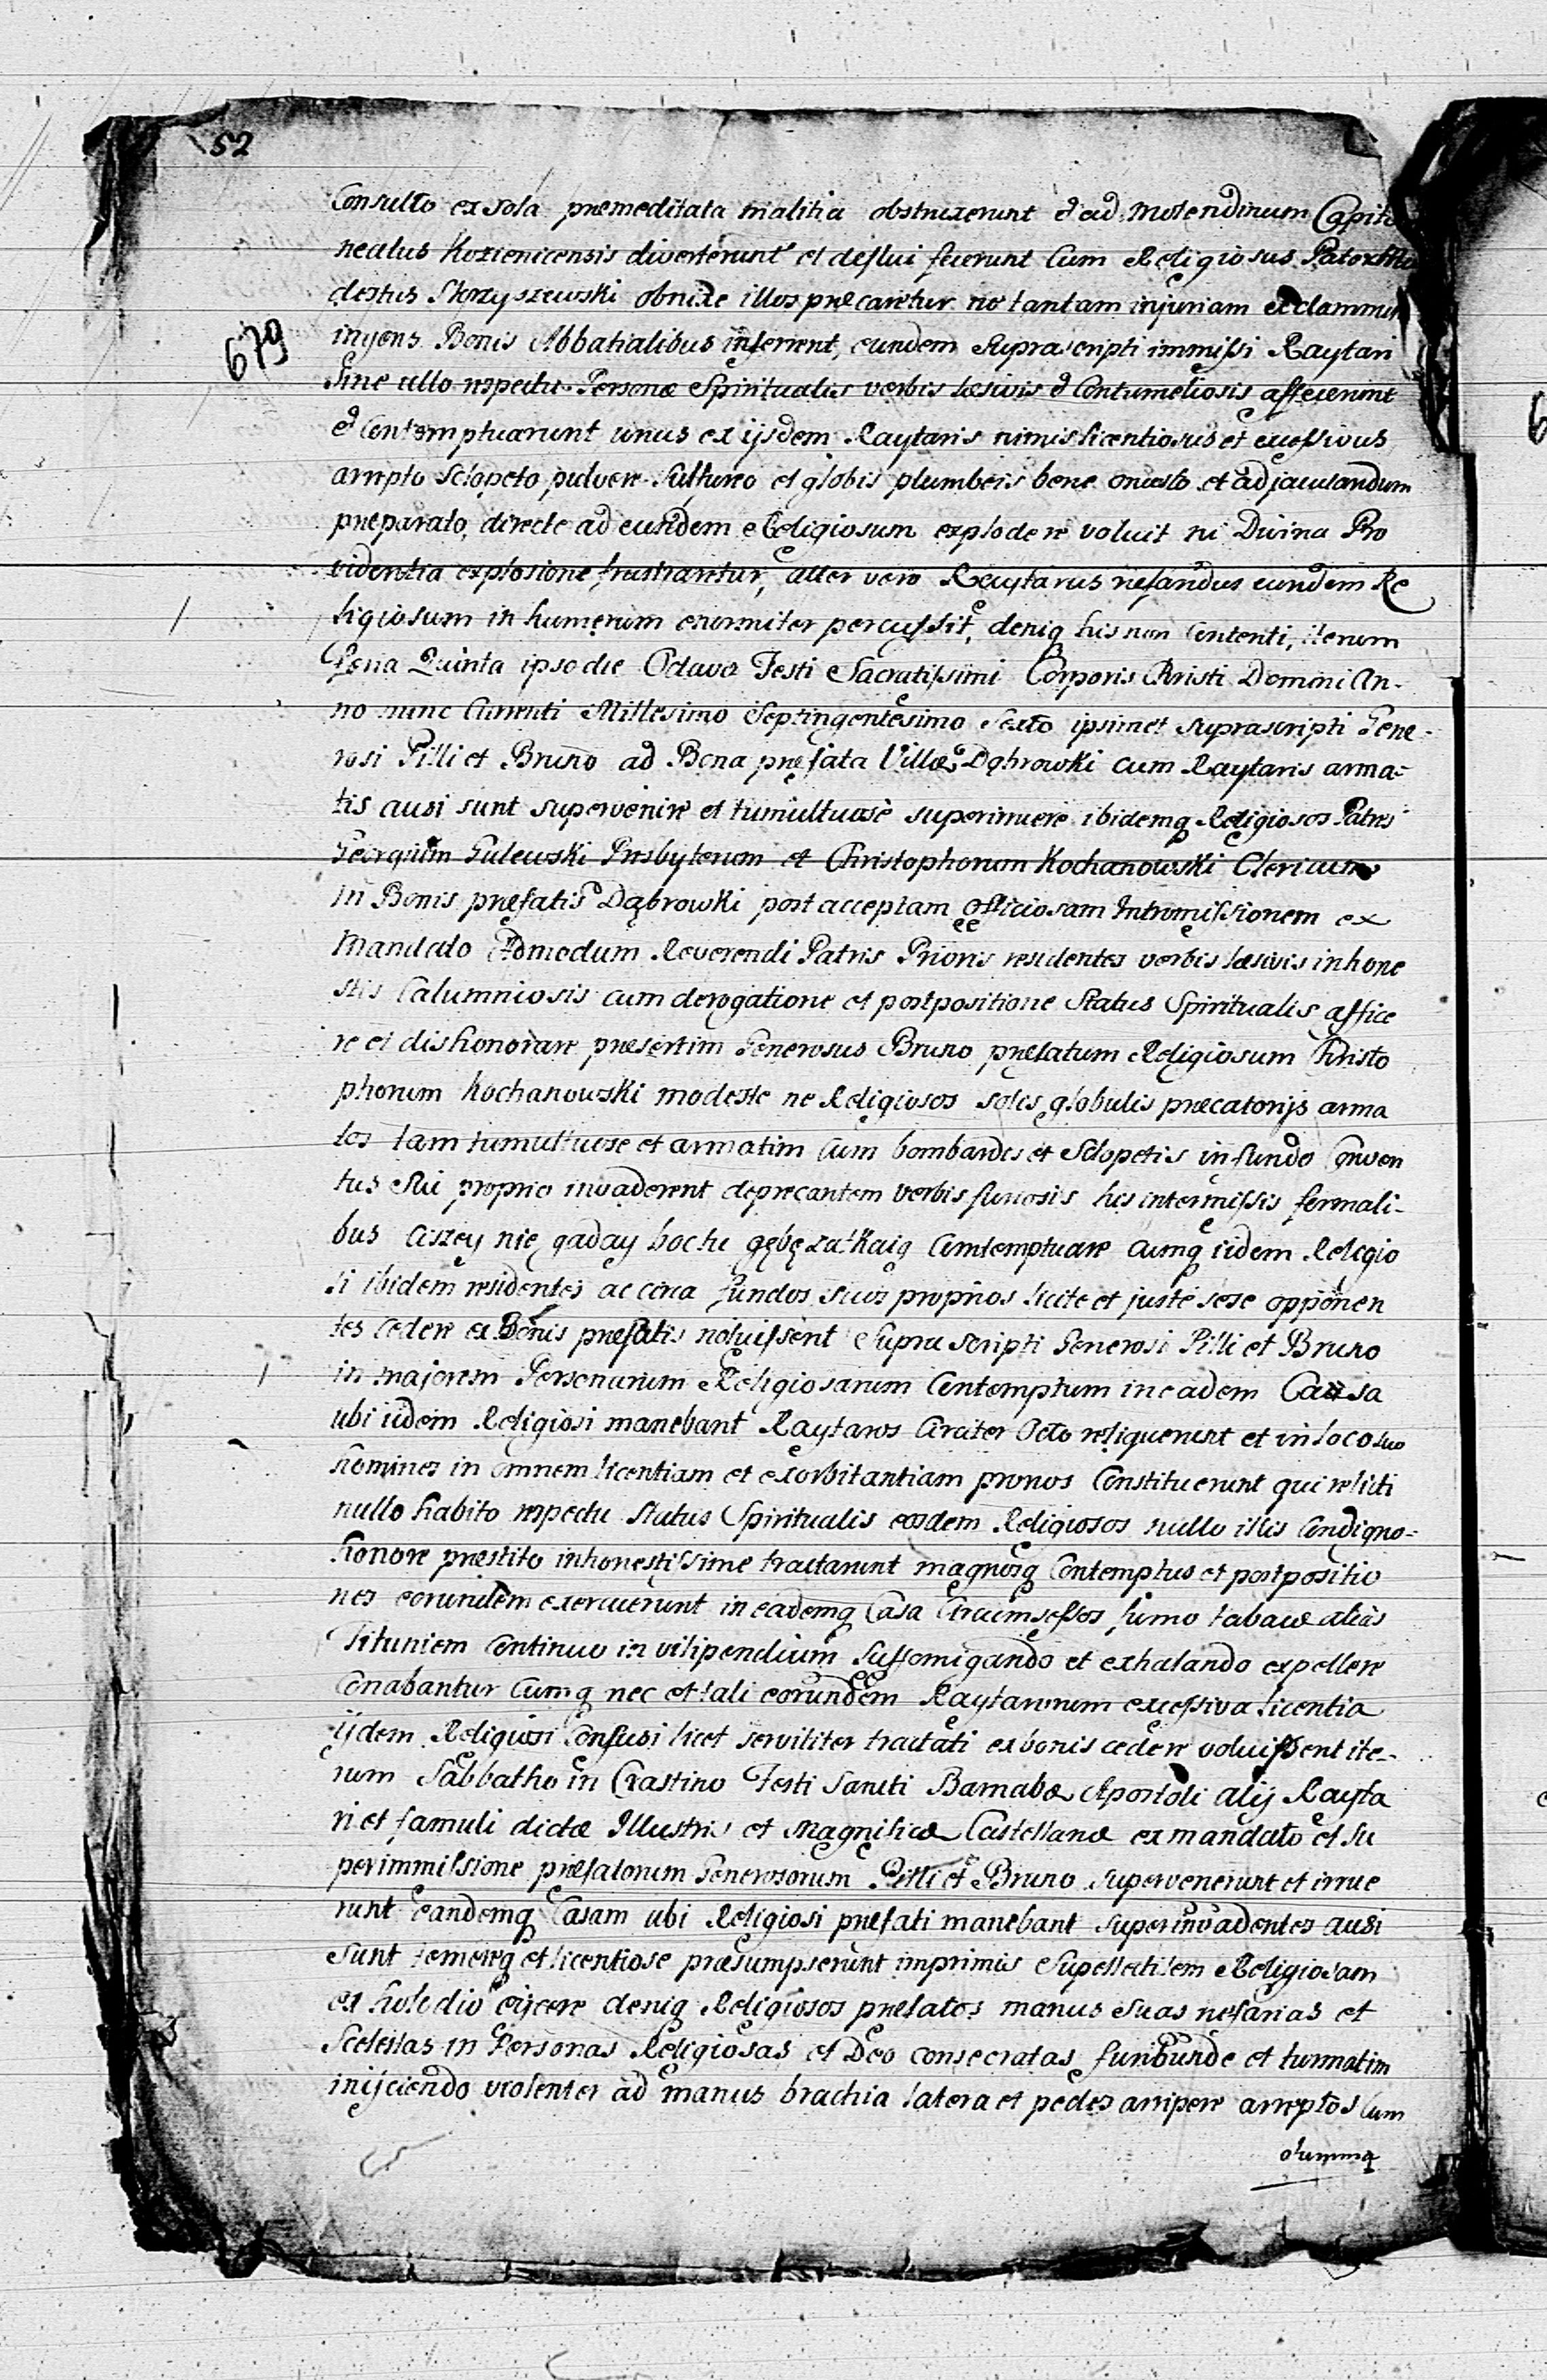 52
Consulto ex sola præmeditata malitia obstruxerunt et ad Molendinum Capita
neatus Kozienicensis diverterunt et deflui fecerunt Cum Religiosus Pater Mo
destus Skrzyszewski obnixe illos præcaretur ne tantam injuriam et damnum
679
ingens Bonis Abbatialibus inferrent, eundem Suprascripti immissi Raytari
Sine ullo respectu Personæ Spiritualis verbis læsivis et Contumeliosis affecerunt
et Contemptuarunt unus ex ijsdem Raytaris nimis licentiosus et excessivus
arrepto Sclopeto pulvere Sulfureo et globis plumbeis bene onusto et ad jaculandum
præparato, directe ad eundem Religiosum explodere voluit ni Divina Pro
videntia explosione frustraretur, alter vero Raytarus nefandus eundem Re
ligiosum in humerum enormiter percussit, deniq his non Contenti, iterum
Feria Quinta ipso die Octava Festi Sacratissimi Corporis Christi Domini An-
no nunc Currenti Millesimo Septingentesimo Sexto ipsimet suprascripti Gene-
rosi Pilli et Bruno ad Bona præfata Villæ Dąbrowki cum Raytaris arma-
tis ausi sunt supervenire et tumultuosè superirruere ibidemq Religiosos Patres
Georgium Gulewski Presbyterum et Christophorum Kochanowski Clericum
in Bonis præfatis Dąbrowki post acceptam officiosam Intromissionem ex
Mandato Admodum Reverendi Patris Prioris residentes verbis læsivis inhone
stis Calumniosis cum derogatione et postpositione Status Spiritualis affice
re et dishonorare præsertim Generosus Bruno præfatum Religiosum Christo
phorum Kochanowski modeste ne Religiosos solis globulis præcatorijs arma
tos tam tumultuose et armatim Cum bombardis et Sclopetis in fundo Conven
tus Sui proprio invaderent deprecantem verbis furiosis his intermissis formali-
bus Ciszey nie gaday bo Ci gębę zatkaią Contemptuare Cumq iidem Religio
si ibidem residentes ac circa fundos suos proprios licite et justè sese opponen
tes cedere ex Bonis præfatis noluissent Suprascripti Generosi Pilli et Bruno
in majorem Personarum Religiosarum Contemptum in eadem Casa
ubi iidem Religiosi manebant Raytaros Circiter Octo reliquerunt et in loco suo
homines in omnem licentiam et exorbitantiam pronos Constituerunt qui relicti
nullo habito respectu Status Spiritualis eosdem Religiosos nullo illis Condigno-
honore præstito inhonestissime tractarunt magnosq Contemptus et postpositio
nes eorundem exercuerunt in eademq Casa Circumsessos fumo tabacæ aliàs
Tituniem Continuo in vilipendium Suffomigando et exhalando expellere
Conabantur Cumq nec et tali eorundem Raytarorum excessiva licentia
ijdem Religiosi Confusi licet serviliter tractati ex bonis cedere voluissent ite-
rum Sabbatho in Crastino Festi Sancti Barnabæ Apostoli alij Rayta
ri et famuli dictæ Illustris et Magnificæ Castellanæ ex mandato et Su
perimmissione præfatorum Generosorum Pilli et Bruno supervenerunt et irrue
runt eandemq Casam ubi Religiosi præfati manebant superinvadentes ausi
sunt temereq et licentiose præsumpserunt imprimis Supellectilem Religiosam
ex eijcere deniq Religiosos præfatos manus suas nefarias et
Scelestas in Personas Religiosas et Deo consecratas furibunde et turmatim
inijciendo violenter ad manus brachia latera et pedes arripere arreptos Cum